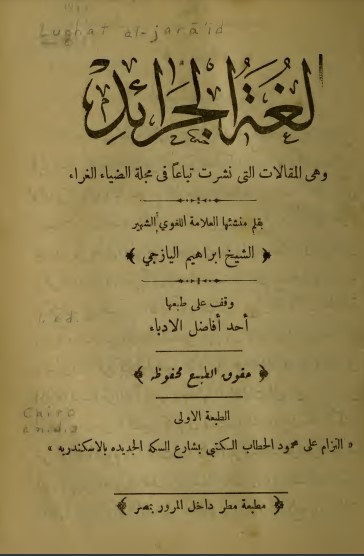 Lughat al-jarā'id
لغة الجرائد
وهى المقالات التى نشرت تباعاً فى مجلة الضياء الغراء
بقلم منشئها العلامة اللغوي الشهير
﴿ الشيخ ابراهيم اليازجي ﴾
وقف على طبعها
أحد أفاضل الادباء
1. ed.
﴿ حقوق الطبع محفوظه ﴾
Cairo
الطبعة الاولى
« التزام على محمود الحطاب الكتبي بشارع السكه الجديده بالاسكندريه »
﴿ مطبعة مطر داخل المرور بمصر ﴾